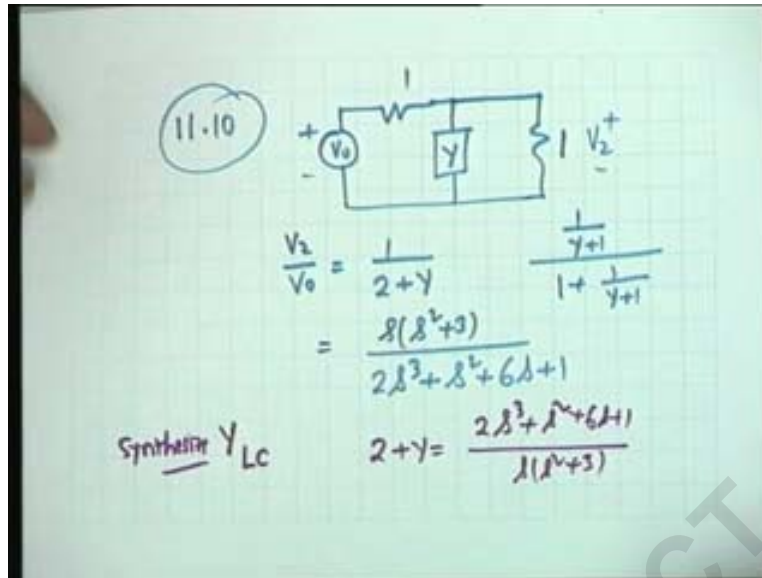 11.10
1
+
V0
-
Y
1
V2
+
-
V2/V0 = 1/(2+Y)
(1/(Y+1))/(1+ 1/(Y+1))
= s(s²+3)/(2s³+s²+6s+1)
Synthesize Y LC
2+Y= (2s³+s²+6s+1)/(s(s²+3))
CT